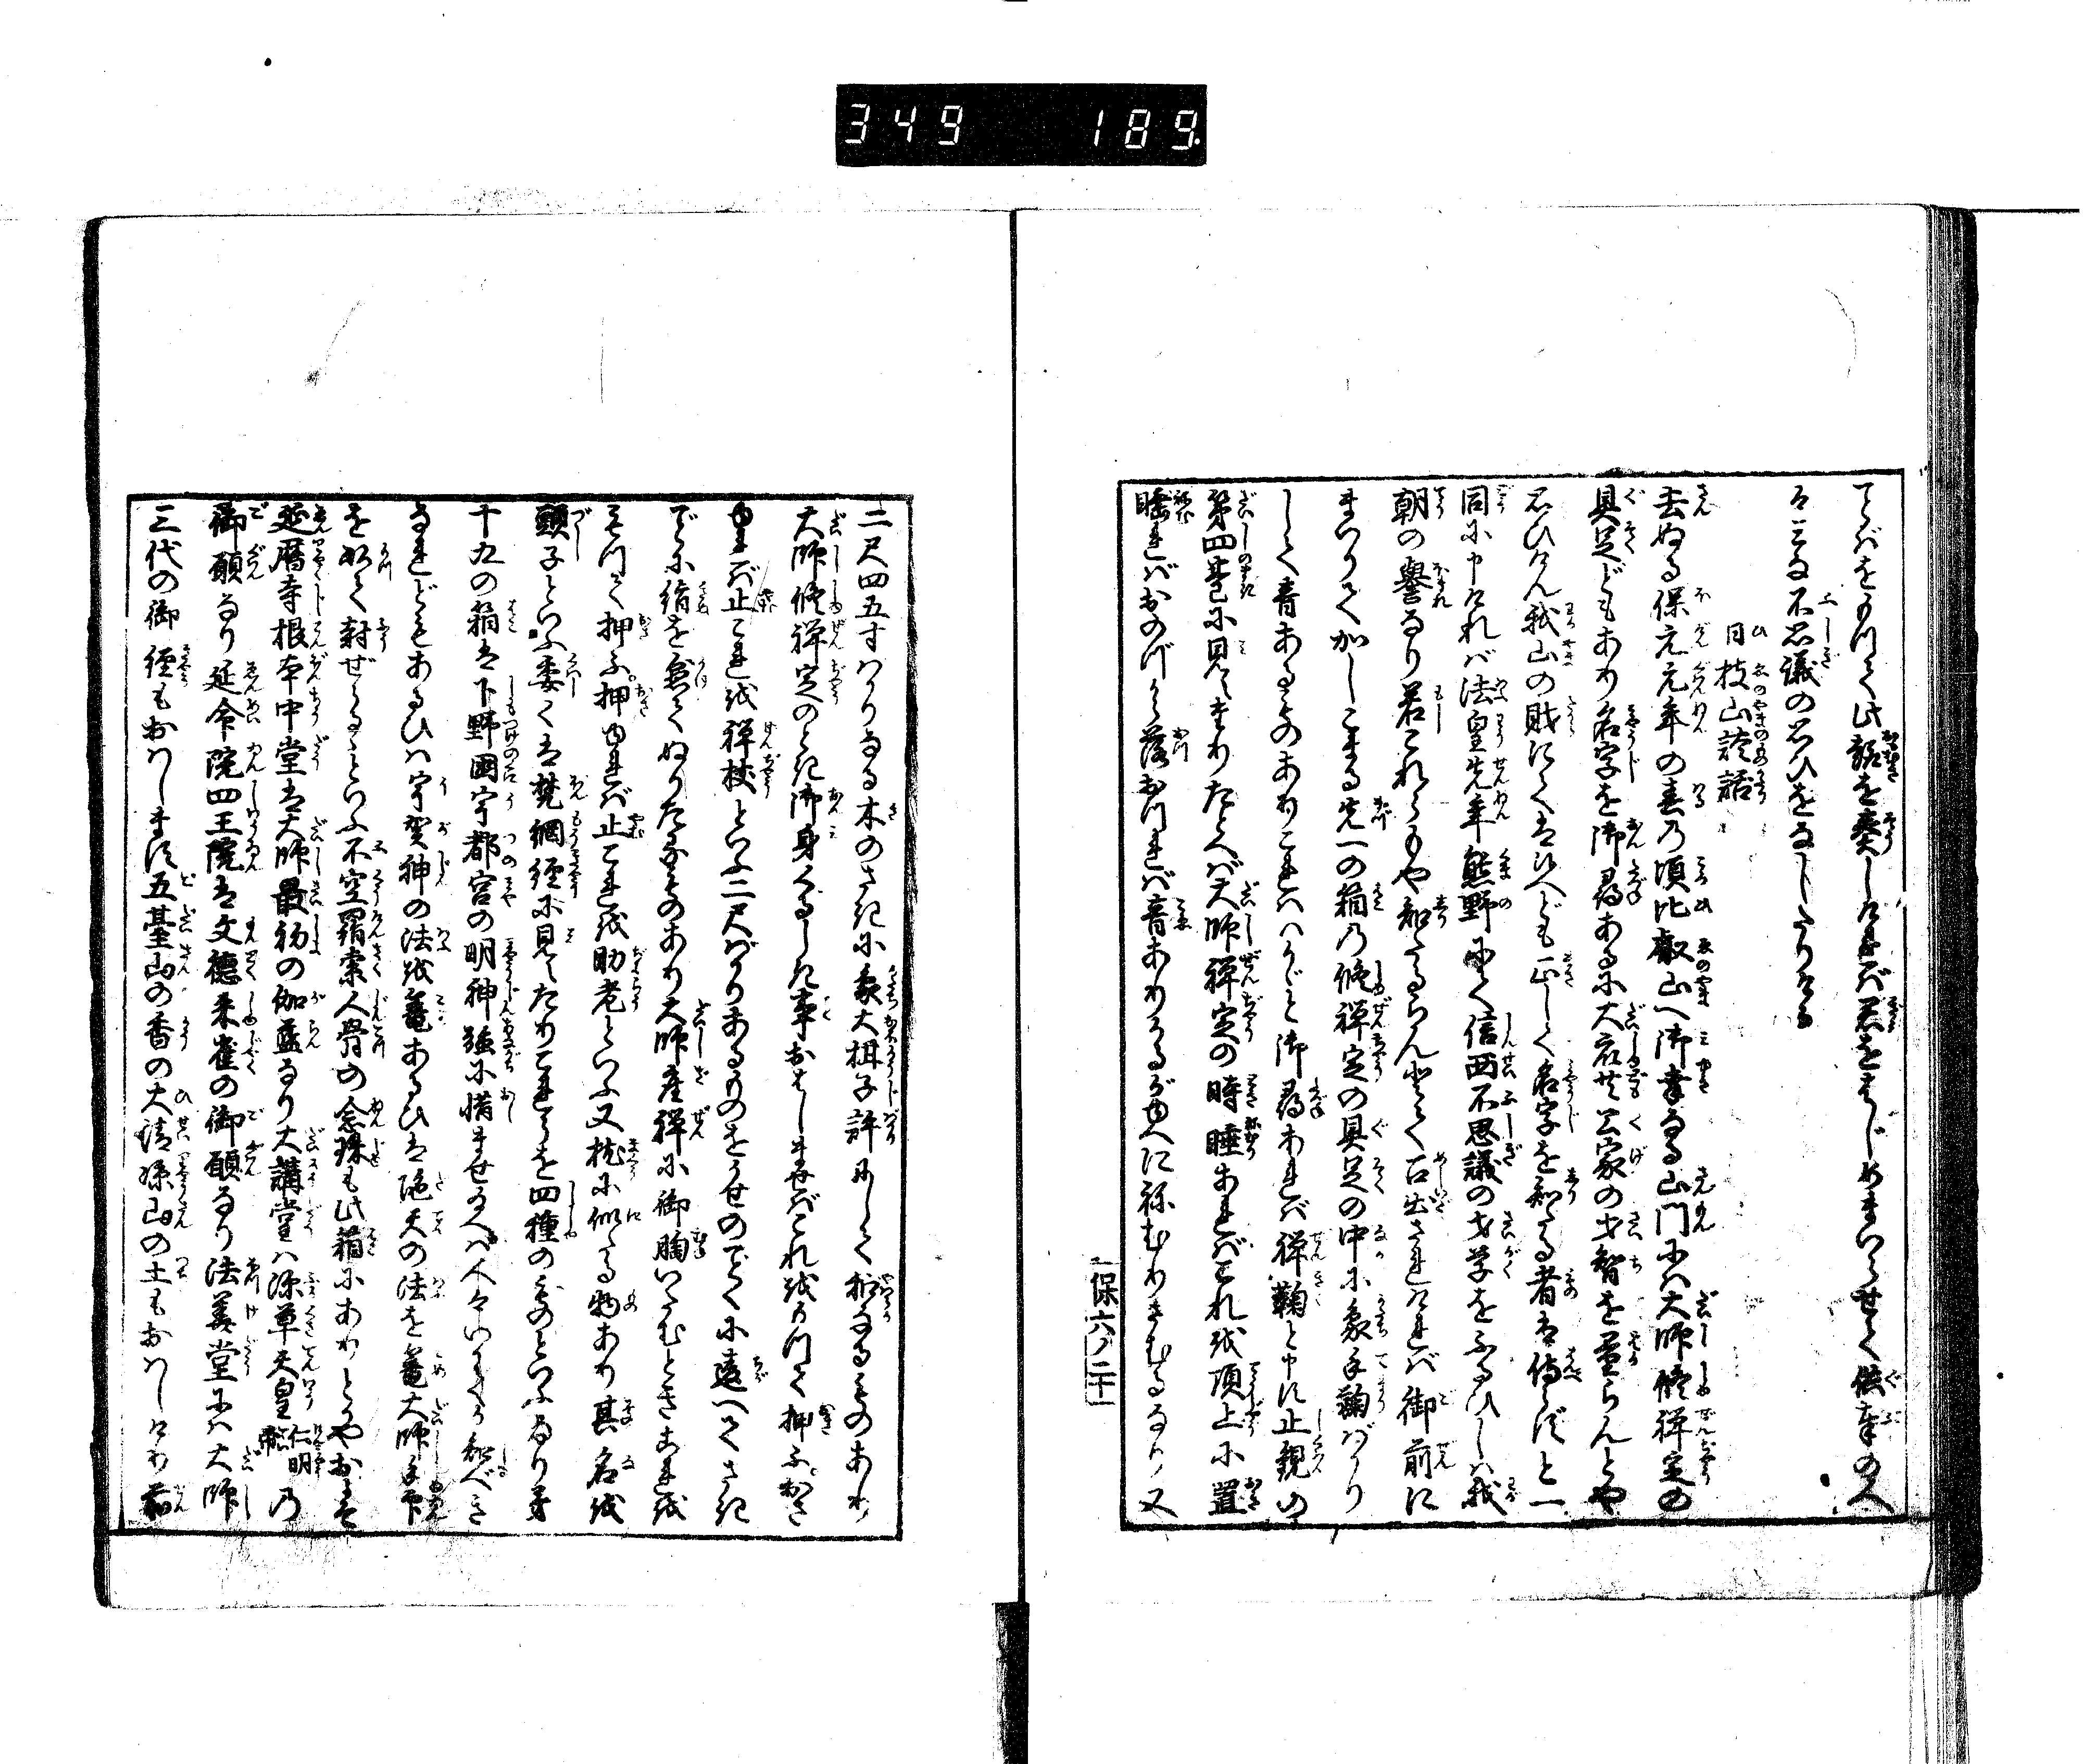 349 189
てらばをもつて此趣を奏しければ君をはじめまいらせて供奉の人
々みな不思議の思ひをなしたりける
日枝山談話
去ぬる保元元年の春乃頃比叡山へ御幸なる山門には大師修禅定の
具足どもあり名字を御尋あるに大衆共公家の才智を量らんとや
思ひけん我山の財にては候へども正しく名字を知たる者は侍らずと一
同に申ければ法皇先年熊野にて信西不思議の才学をふるひしは我
朝の誉なり若これらもや知たるらん迚て召出されければ御前に
まいりてかしこまる先一の箱乃修禅定の具足の中に象手鞠ばかり
して音あるものありこれはいかにと御尋あれば禅鞠と申す止観の
第四巻に見えたりたとへば大師禅定の時睡あればこれを頂上に置
睡ればおのづから落おつれば音ありかるがゆへにねむりさむるなり又
保六ノ二十一
二尺四五寸ばかりなる木のさきに象大柑子許にして和なるものあり
大師修禅定のとき御身くるしき事おはしませばこれをもつて押ふおさ
ゆれば止これを禅杖といふ二尺ばかりあるものをうせのごとくに違へてさき
ごとに絹を張てぬりたるものあり大師座禅に御胸いたむときこれを
もつて押ふ押ゆれば止これを助老といふ又枕に似たる物あり其名を
頭子といふ委くは梵網経に見えたりこれらを四種のものといふなり才
十九の箱は下野国宇都宮の明神強に惜ませ給へば人々いかでか知べき
なれどもあるひは宇賀神の法を篭あるひは陀天の法を篭大師手印
を以て封ぜらるといふ不空羂索人骨の念珠も此箱にありとかやおよそ
延暦寺根本中堂は大師最初の伽藍なり大講堂は深草天皇仁明帝乃
御願なり延命院四王院は文徳朱雀の御願なり法華堂には大師
三代の御経もおはします五台山の香の火清涼山の土もおはしけり前